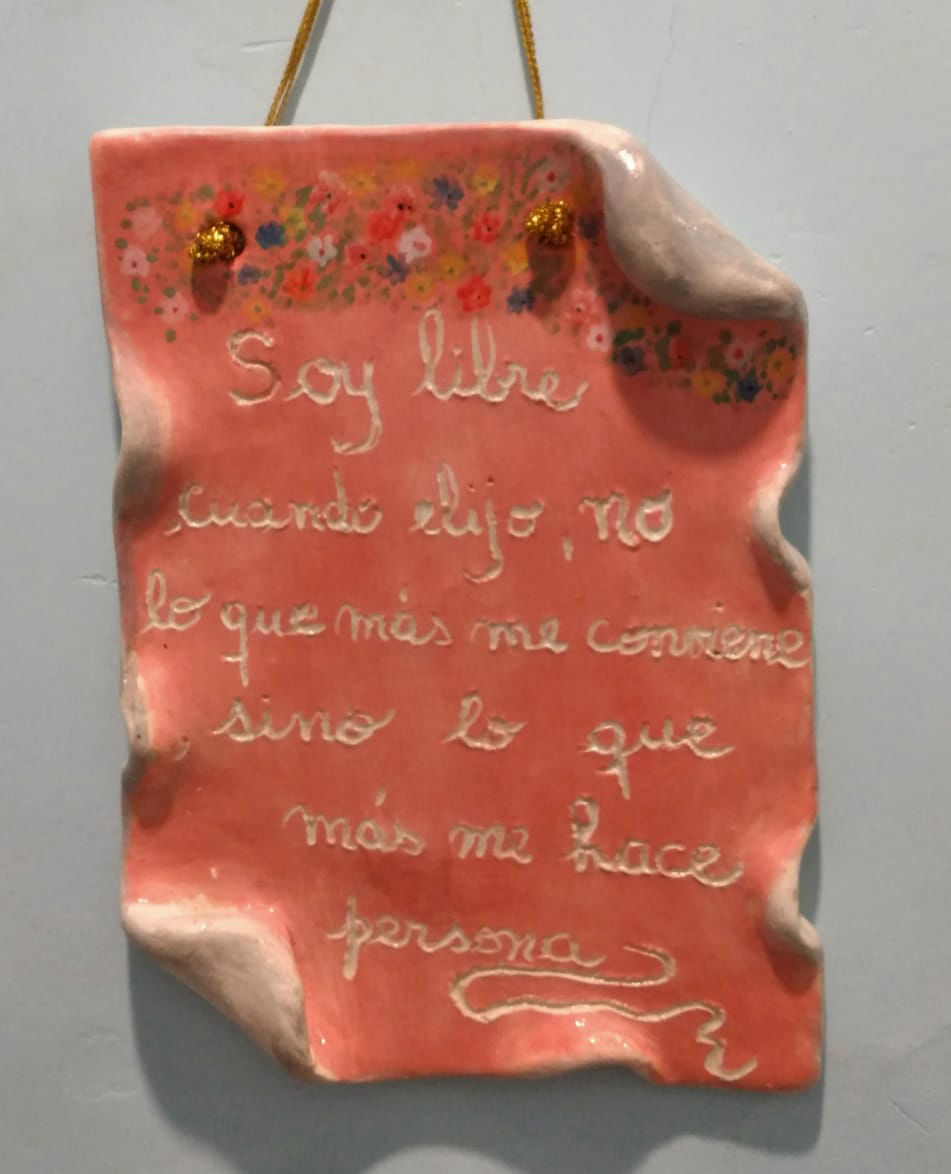 Soy libre
cuando elijo, no
lo que más me conviene
, sino lo que
más me hace
persona